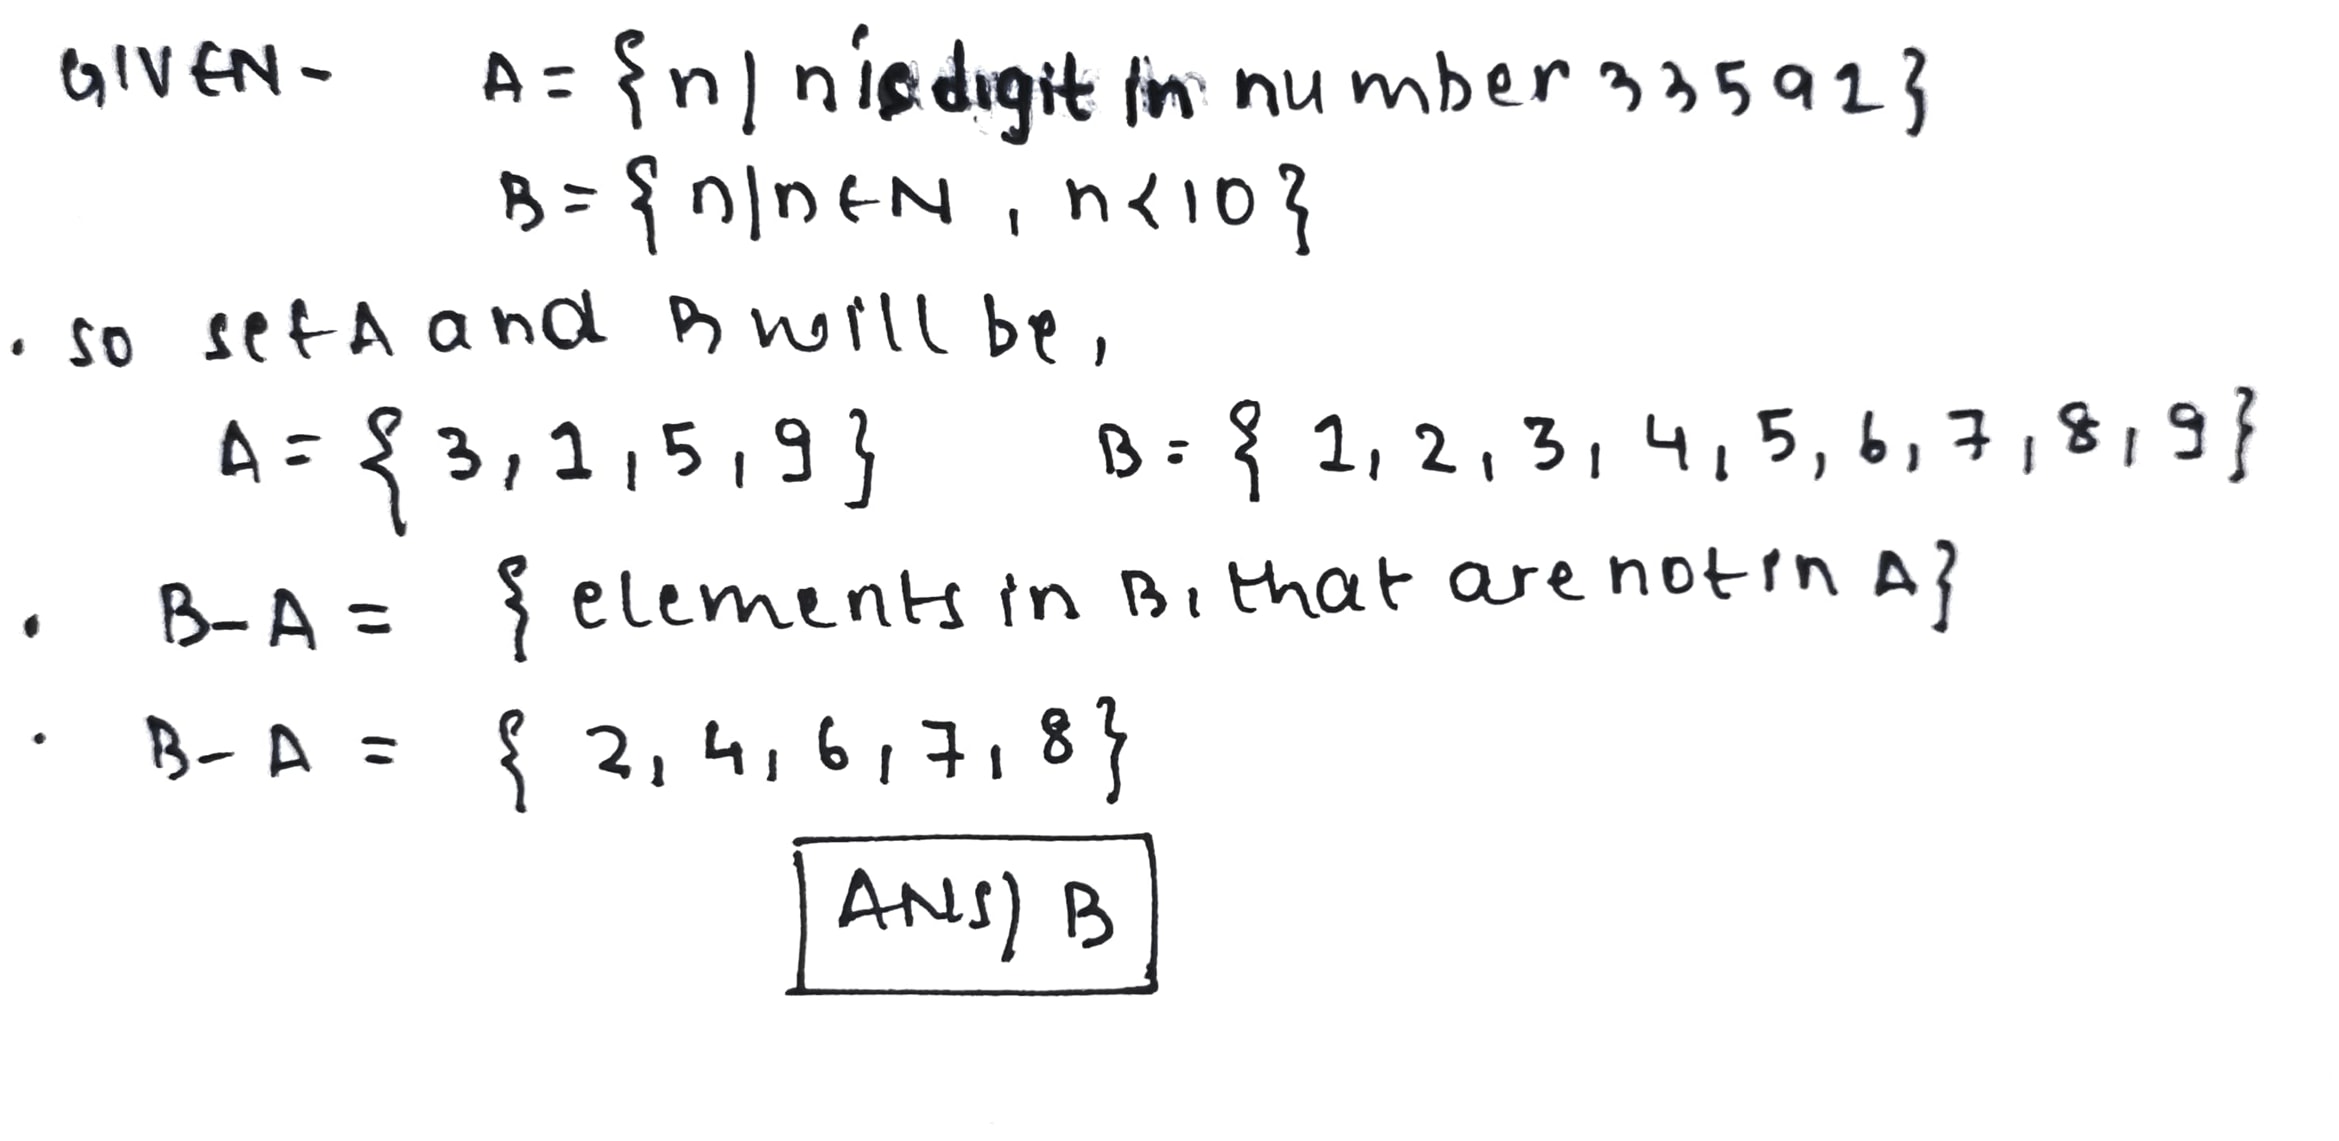 GIVEN- A = {n | n is digit in number 33591}
B = {n|n∈N, n<10}
. so set A and B will be,
A = {3, 1, 5, 9} B = {1, 2, 3, 4, 5, 6, 7, 8, 9}
. B-A = {elements in B, that are not in A}
. B-A = {2, 4, 6, 7, 8}
ANS) B